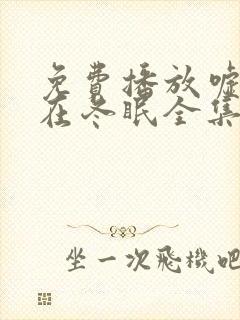 免費播放噓
在冬眠全集
坐一次飛機吧